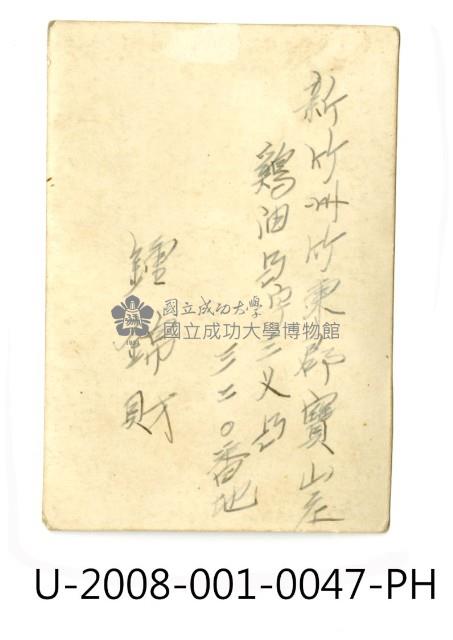 新竹州竹東郡寶山庄
鶏油
三二〇番地
鍾錦財
國立成功大學
國立成功大學博物館
U-2008-001-0047-PH